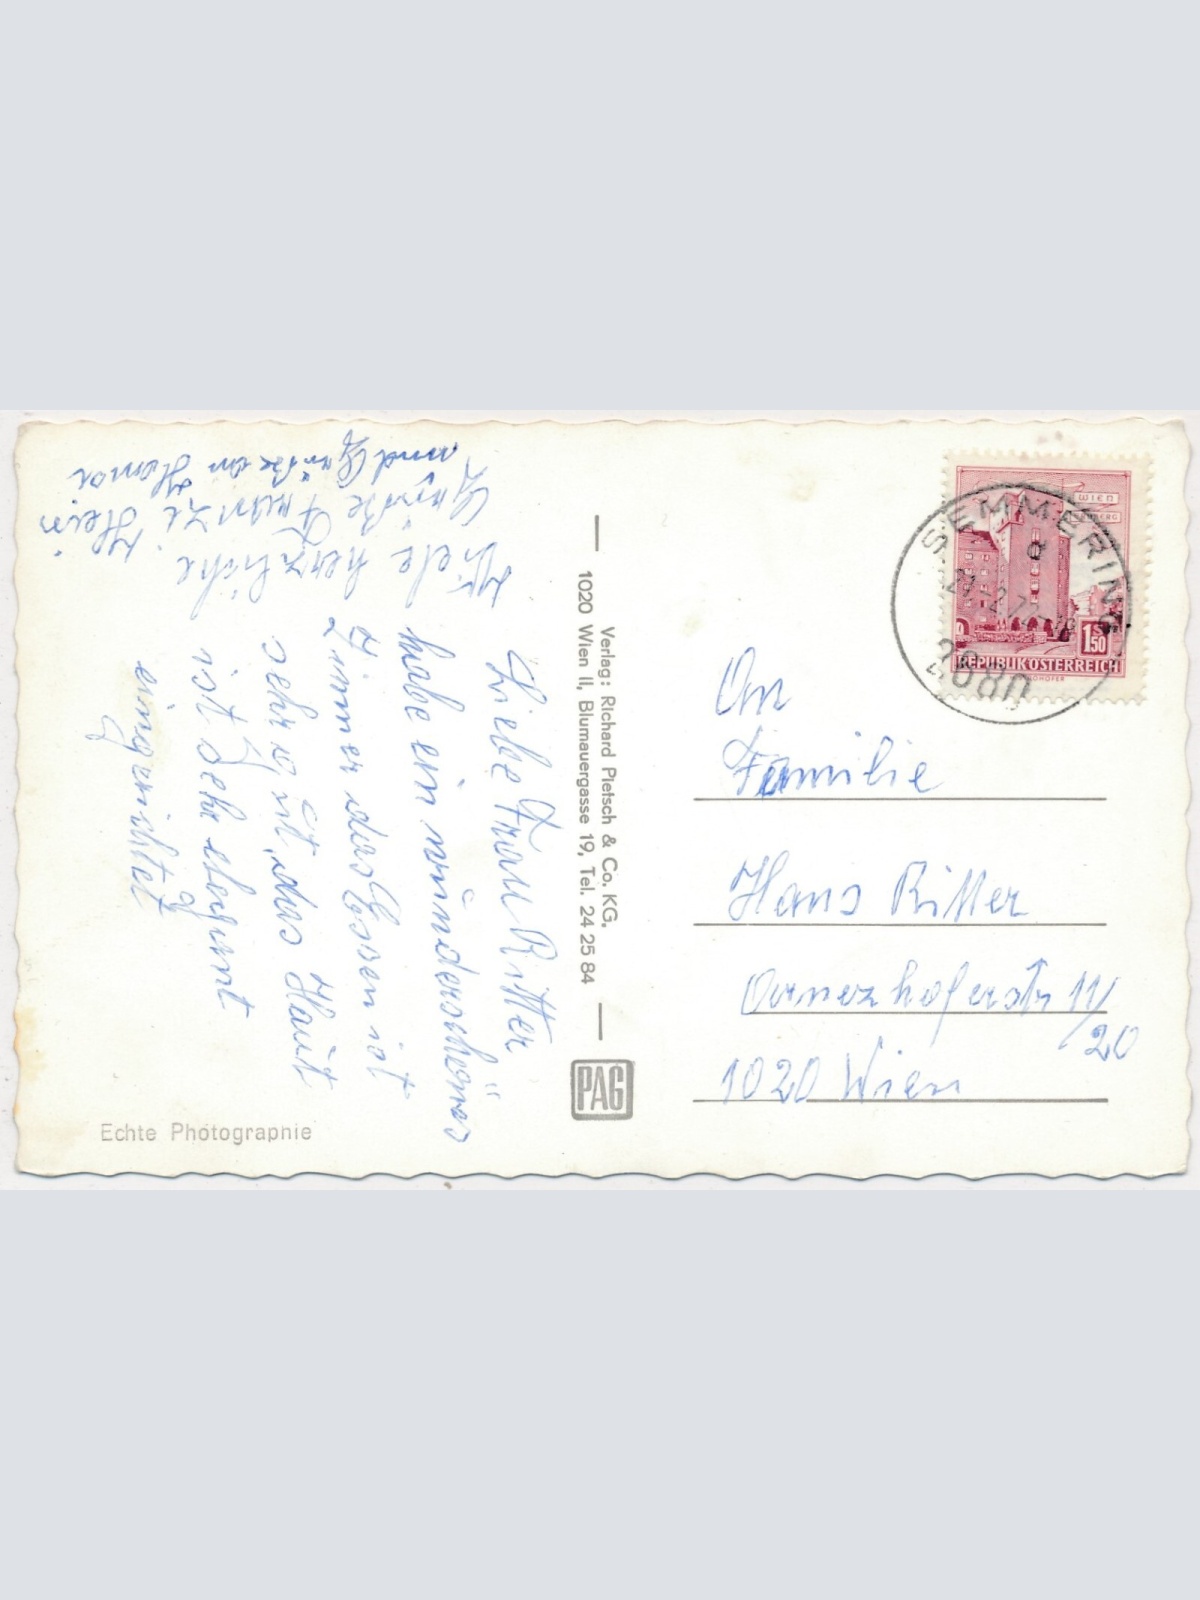 Liebe Frau Ritter
habe ein wünderschönes
Zimmer das Essen ist
sehr gut, das Haut
ist sehr elegant
eingerichtet
Viele herzliche
Grüße Franzi Hein
und Grüße an Hansi
Verlag: Richard Pietsch & Co. KG.
1020 Wien II, Blumauergasse 19, Tel. 24 25 84
PAG
Echte Photographie
WIEN
REPUBLIK ÖSTERREICH
S
1.50
SEMMERING
2680
An
Familie
Hans Ritter
11/
20
1020 Wien